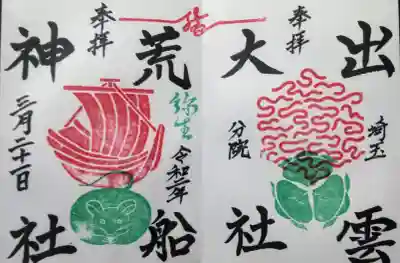 奉拝
出雲
埼玉
大社
分院
奉拝
荒船
彌生
令和二年
神社
三月二十一日